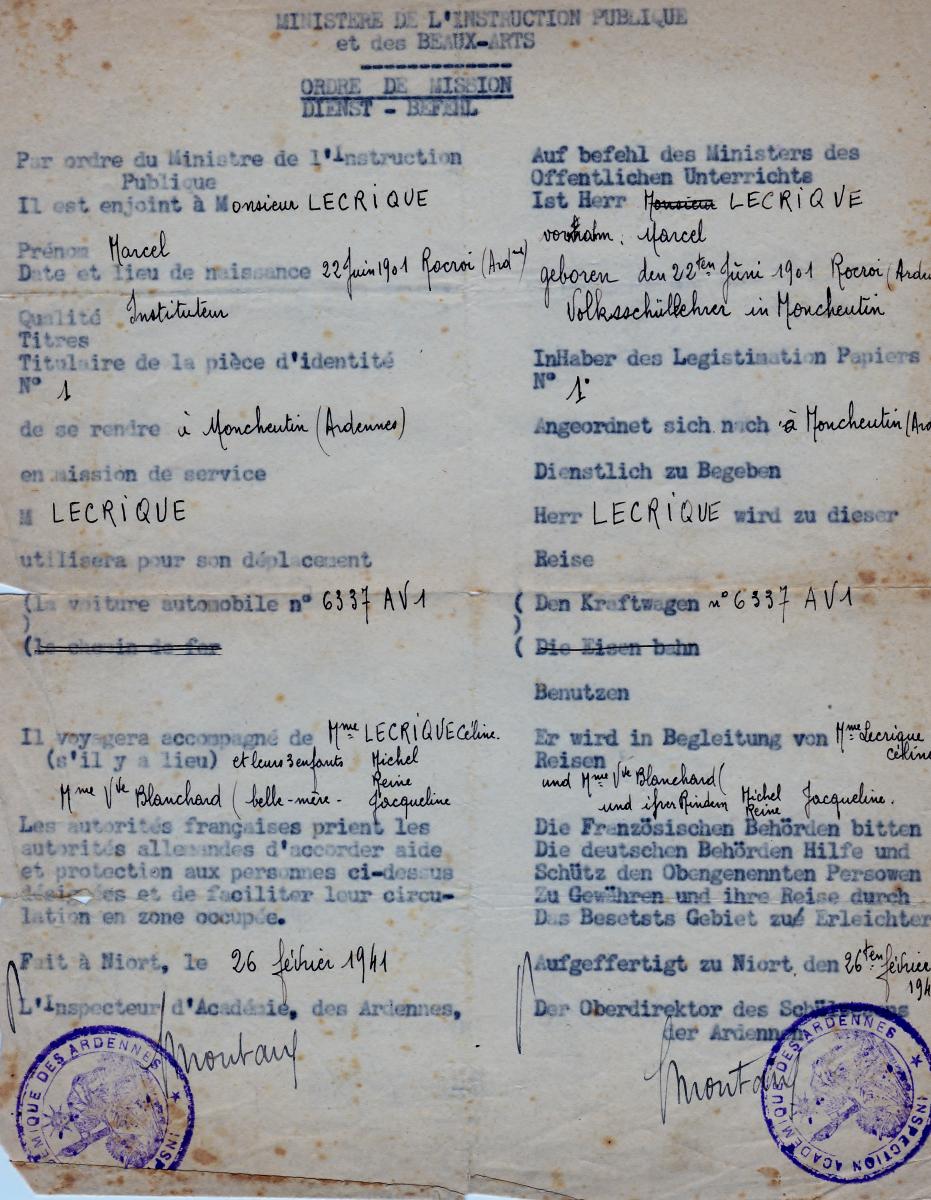 MINISTERE DE L'INSTRUCTION PUBLIQUE
et des BEAUX-ARTS
ORDRE DE MISSION
DIENST - BEFEHL
Par ordre du Ministre de l'Instruction
Publique
Il est enjoint à Monsieur LECRIQUE
Prénom Marcel
Date et lieu de naissance 22 Juin 1901 Rocroi (Ard nes)
Qualité Instituteur
Titres
Titulaire de la pièce d'identité
N° 1
de se rendre à Moncheutin (Ardennes)
en mission de service
M LECRIQUE
utilisera pour son déplacement
(La voiture automobile n° 6337 AV1
)
(le chemin de fer
Il voyagera accompagné de Mme LECRIQUE Céline.
(s'il y a lieu) et leurs 3 enfants Michel
Reine
Mme Vve Blanchard (belle-mère- Jacqueline
Les autorités françaises prient les
autorités allemandes d'accorder aide
et protection aux personnes ci-dessus
désignées et de faciliter leur circu-
lation en zone occupée.
Fait à Niort, le 26 février 1941
L'Inspecteur d'Académie, des Ardennes,
Montaux
Auf befehl des Ministers des
Offentlichen Unterrichts
Ist Herr Monsieur LECRIQUE
Marcel
geboren den 22ten Jüni 1901 Rocroi (Arde
Volksschüllehrer in Moncheutin
InHaber des Legistimation Papiers
N° 1°
Angeordnet sich nach à Moncheutin (Ard
Dienstlich zu Begeben
Herr LECRIQUE wird zu dieser
Reise
( Den Kraftwagen n° 6337 AV1
)
( Die Eisen bahn
Benutzen
Er wird in Begleitung von Mme Lecrique
Céline
Reisen
und Mme Vve Blanchard (
und ihrer Kindern Michel Jacqueline.
Reine
Die Französischen Behörden bitten
Die deutschen Behörden Hilfe und
Schütz den Obengenennten Persowen
Zu Gewähren und ihre Reise durch
Das Besetsts Gebiet zu Erleichter
Aufgeffertigt zu Niort, den 26ten février
194
Der Oberdirektor des
der Ardennen
Montaux
MIQUE DES ARDENNES ★ INSP
INSPECTION ACADEMIQUE DES ARDENNES ★